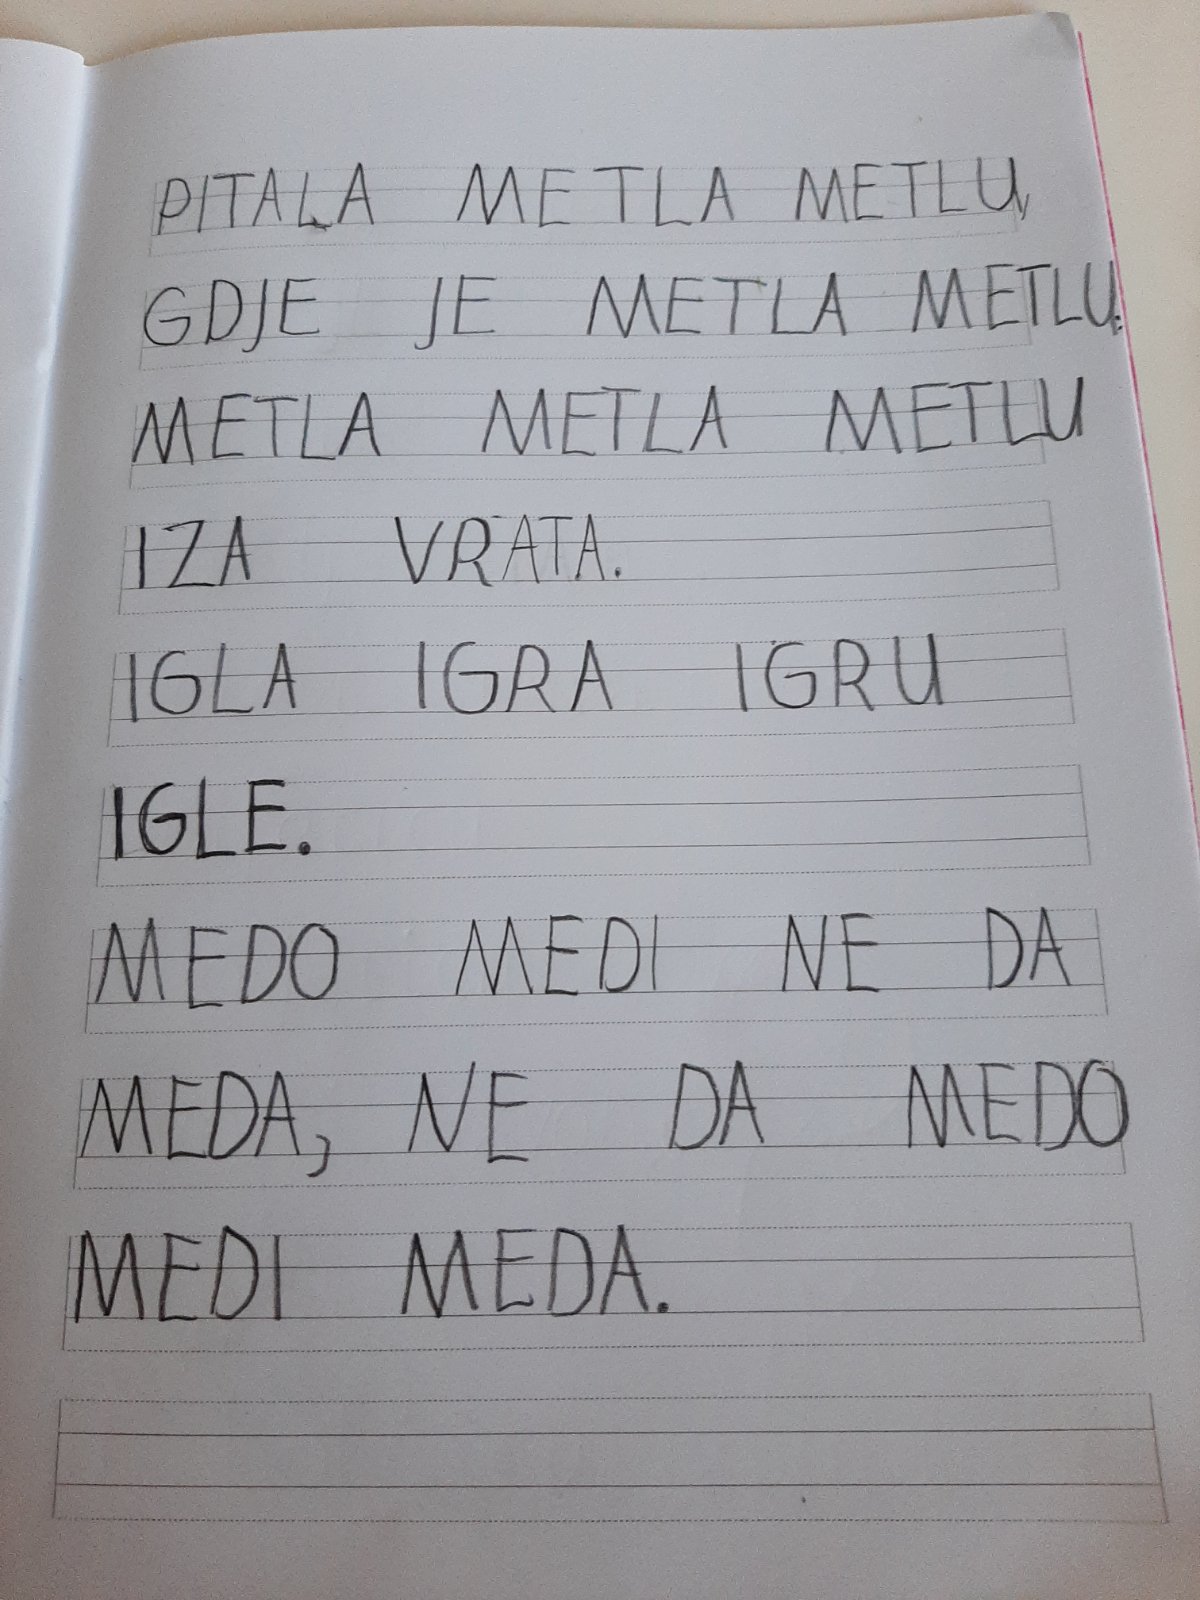 PITALA METLA METLU,
GDJE JE METLA METLU.
METLA METLA METLU
IZA VRATA.
IGLA IGRA IGRU
IGLE.
MEDO MEDI NE DA
MEDA, NE DA MEDO
MEDI MEDA.